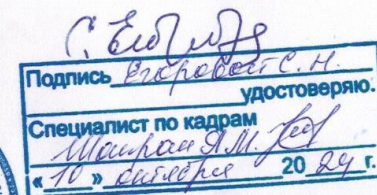 Подпись Егоровой С. Н.
удостоверяю.
Специалист по кадрам
Я.М.
«10» октября 2024 г.